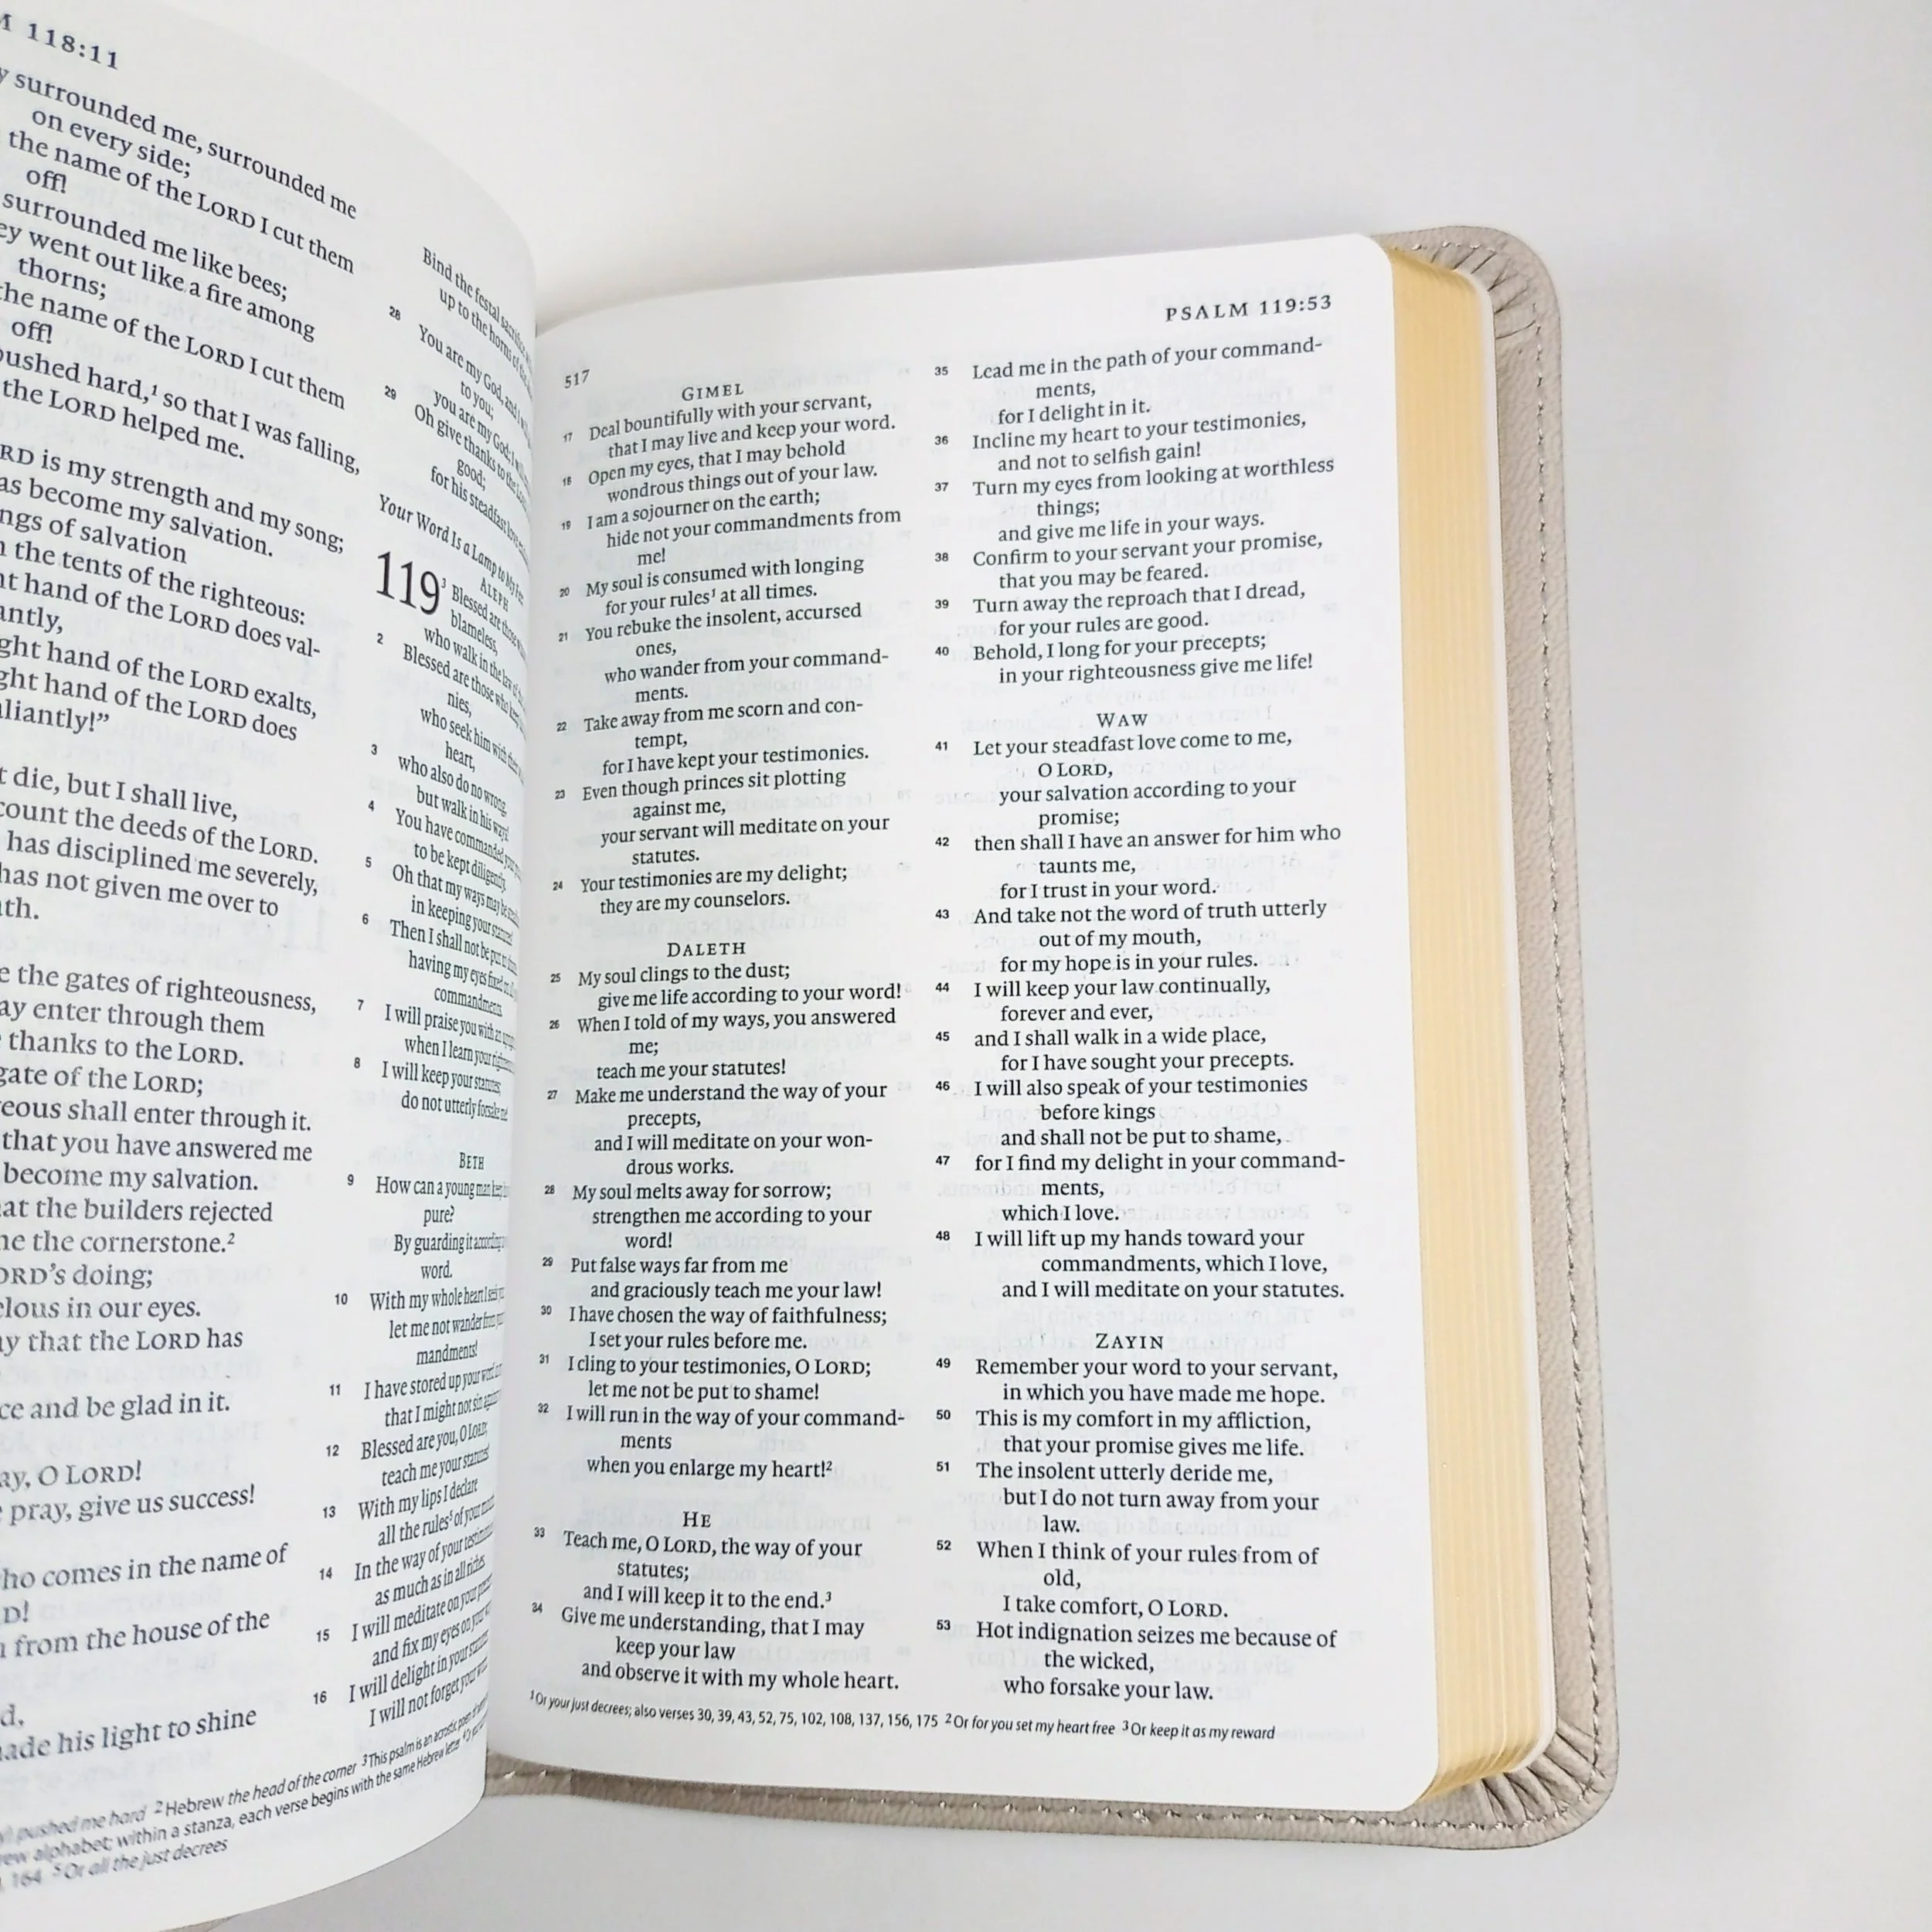 118:11
surrounded me, surrounded me
on every side;
the name of the LORD I cut them
off!
surrounded me like bees;
went out like a fire among
thorns;
the name of the LORD I cut them
off!
pushed hard,¹ so that I was falling,
the LORD helped me.
is my strength and my song;
become my salvation.
of salvation
the tents of the righteous:
hand of the LORD does val-
hand of the LORD exalts,
hand of the LORD does
die, but I shall live,
the deeds of the LORD.
has disciplined me severely,
has not given me over to
the gates of righteousness,
enter through them
thanks to the LORD.
gate of the LORD;
shall enter through it.
that you have answered me
become my salvation.
the builders rejected
the cornerstone.²
doing;
in our eyes.
that the LORD has
and be glad in it.
O LORD!
pray, give us success!
comes in the name of
from the house of the
his light to shine
Bind the festal
up to the horns
28 You are my God, and I
to you;
you are my God; I
29 Oh give thanks to the
good;
for his steadfast love
Your Word Is a Lamp to My
ALEPH
119³ Blessed are those
blameless,
who walk in the law
2 Blessed are those who
nies,
who seek him with
heart,
3 who also do no wrong,
but walk in his ways!
4 You have commanded
to be kept diligently.
5 Oh that my ways may be
in keeping your statutes!
6 Then I shall not be put to
having my eyes fixed
commandments.
7 I will praise you with an
when I learn your
8 I will keep your statutes;
do not utterly forsake me!
BETH
9 How can a young man
pure?
By guarding it according
word.
10 With my whole heart I seek
let me not wander from
mandments!
11 I have stored up your word
that I might not sin
12 Blessed are you, O LORD;
teach me your statutes!
13 With my lips I declare
all the rules⁵ of your
14 In the way of your
as much as in all riches.
15 I will meditate on your
and fix my eyes on your
16 I will delight in your
I will not forget your
pushed me hard ²Hebrew the head of the corner ³This psalm is an acrostic poem
alphabet; within a stanza, each verse begins with the same Hebrew letter
164 ⁵Or all the just decrees
517
PSALM 119:53
GIMEL
17 Deal bountifully with your servant,
that I may live and keep your word.
18 Open my eyes, that I may behold
wondrous things out of your law.
19 I am a sojourner on the earth;
hide not your commandments from
me!
20 My soul is consumed with longing
for your rules¹ at all times.
21 You rebuke the insolent, accursed
ones,
who wander from your command-
ments.
22 Take away from me scorn and con-
tempt,
for I have kept your testimonies.
23 Even though princes sit plotting
against me,
your servant will meditate on your
statutes.
24 Your testimonies are my delight;
they are my counselors.
DALETH
25 My soul clings to the dust;
give me life according to your word!
26 When I told of my ways, you answered
me;
teach me your statutes!
27 Make me understand the way of your
precepts,
and I will meditate on your won-
drous works.
28 My soul melts away for sorrow;
strengthen me according to your
word!
29 Put false ways far from me
and graciously teach me your law!
30 I have chosen the way of faithfulness;
I set your rules before me.
31 I cling to your testimonies, O LORD;
let me not be put to shame!
32 I will run in the way of your command-
ments
when you enlarge my heart!²
HE
33 Teach me, O LORD, the way of your
statutes;
and I will keep it to the end.³
34 Give me understanding, that I may
keep your law
and observe it with my whole heart.
35 Lead me in the path of your command-
ments,
for I delight in it.
36 Incline my heart to your testimonies,
and not to selfish gain!
37 Turn my eyes from looking at worthless
things;
and give me life in your ways.
38 Confirm to your servant your promise,
that you may be feared.
39 Turn away the reproach that I dread,
for your rules are good.
40 Behold, I long for your precepts;
in your righteousness give me life!
WAW
41 Let your steadfast love come to me,
O LORD,
your salvation according to your
promise;
42 then shall I have an answer for him who
taunts me,
for I trust in your word.
43 And take not the word of truth utterly
out of my mouth,
for my hope is in your rules.
44 I will keep your law continually,
forever and ever,
45 and I shall walk in a wide place,
for I have sought your precepts.
46 I will also speak of your testimonies
before kings
and shall not be put to shame,
47 for I find my delight in your command-
ments,
which I love.
48 I will lift up my hands toward your
commandments, which I love,
and I will meditate on your statutes.
ZAYIN
49 Remember your word to your servant,
in which you have made me hope.
50 This is my comfort in my affliction,
that your promise gives me life.
51 The insolent utterly deride me,
but I do not turn away from your
law.
52 When I think of your rules from of
old,
I take comfort, O LORD.
53 Hot indignation seizes me because of
the wicked,
who forsake your law.
¹Or your just decrees; also verses 30, 39, 43, 52, 75, 102, 108, 137, 156, 175 ²Or for you set my heart free ³Or keep it as my reward